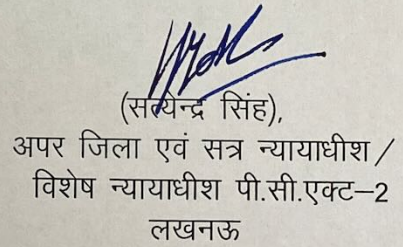 (सत्येन्द्र सिंह),
अपर जिला एवं सत्र न्यायाधीश /
विशेष न्यायाधीश पी.सी.एक्ट–2
लखनऊ